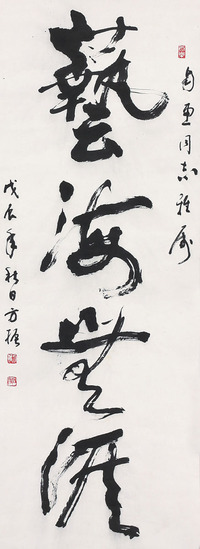 同志雅属
藝海無涯
戊辰年秋日方振